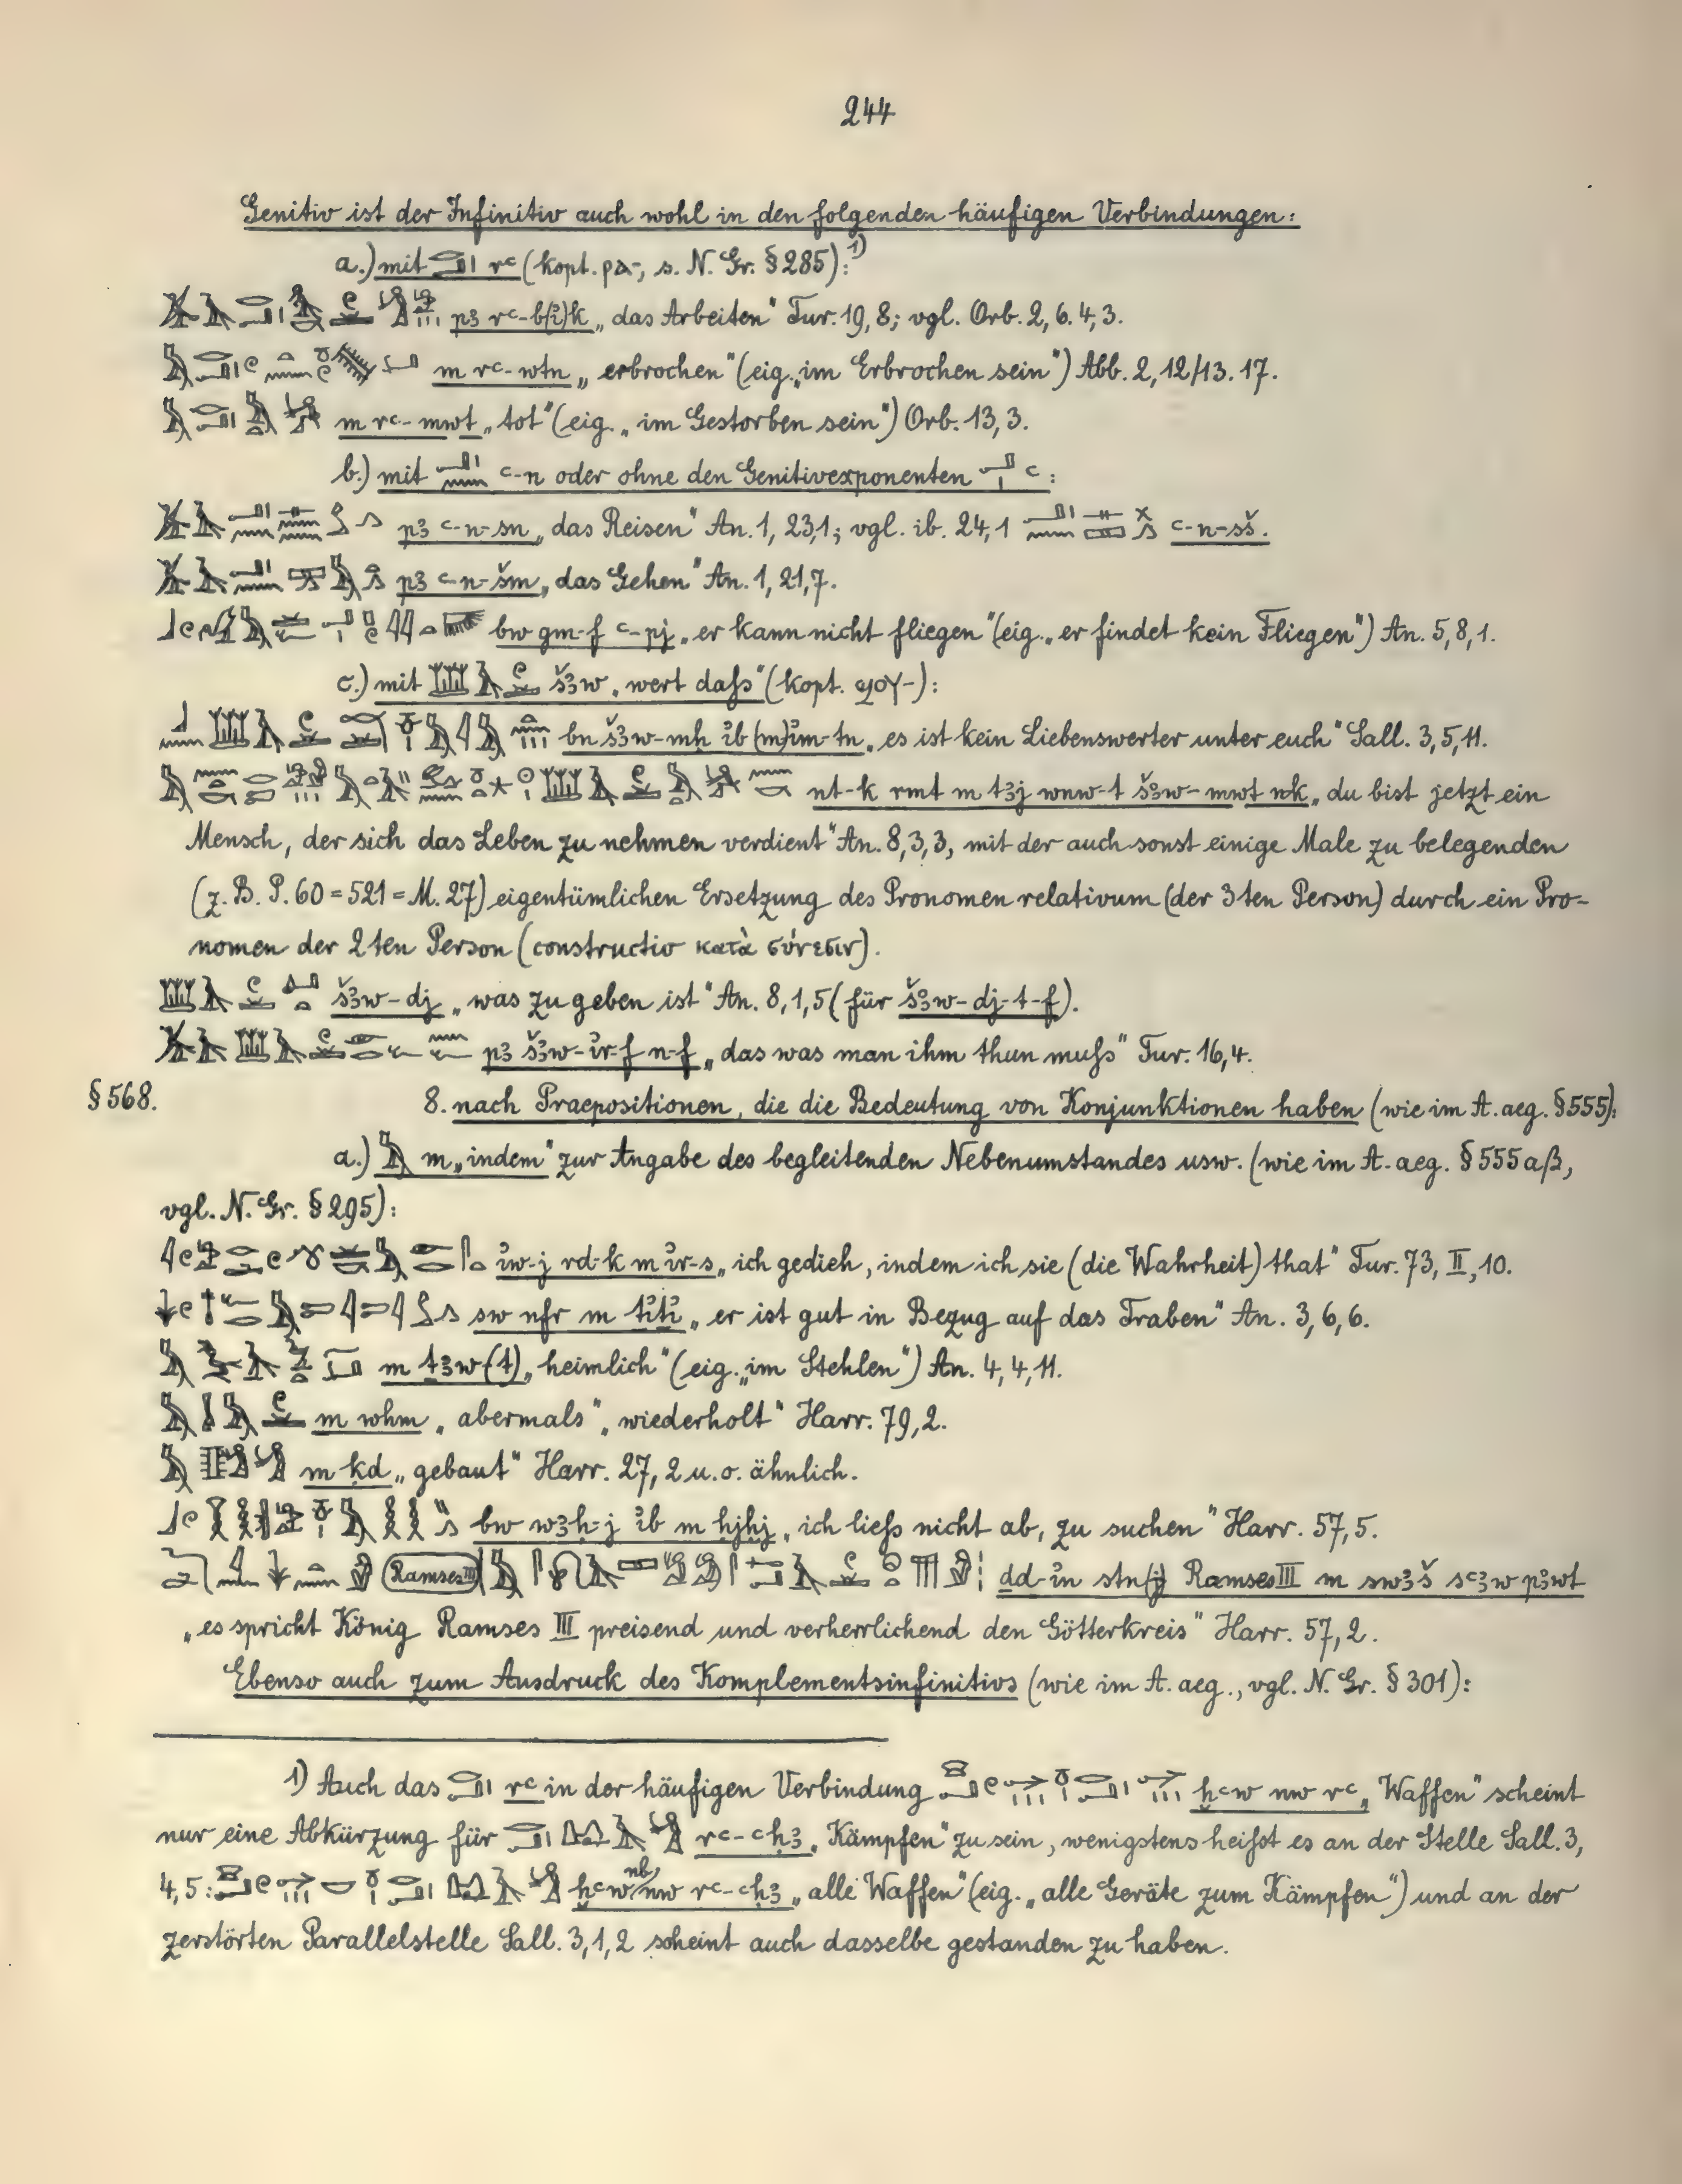 244
Genitiv ist der Infinitiv auch wohl in den folgenden häufigen Verbindungen:
a.) mit rꜥ (kopt. ⲣⲁ-, s. N. Gr. § 285):¹⁾
pꜣ rꜥ-b(ꞽ)k „das Arbeiten" Tur. 19, 8; vgl. Orb. 2, 6. 4, 3.
m rꜥ-wtn „erbrochen" (eig. „im Erbrochen sein") Abb. 2, 12/13. 17.
m rꜥ-mwt „tot" (eig. „im Gestorben sein") Orb. 13, 3.
b.) mit ꜥ-n oder ohne den Genitivexponenten ꜥ:
pꜣ ꜥ-n-sn „das Reisen" An. 1, 23,1; vgl. ib. 24,1 ꜥ-n-sš.
pꜣ ꜥ-n-šm „das Gehen" An. 1, 21,7.
bw gm-f ꜥ-pj „er kann nicht fliegen" (eig. „er findet kein Fliegen") An. 5, 8, 1.
c.) mit šꜣw „wert daſs" (kopt. ϣⲟⲩ-):
bn šꜣw-mḥ ꞽb (m)ꞽm-tn „es ist kein Liebenswerter unter euch" Sall. 3, 5, 11.
nt-k rmt m tꜣj wnw-t šꜣw-mwt nk „du bist jetzt ein
Mensch, der sich das Leben zu nehmen verdient" An. 8, 3, 3, mit der auch sonst einige Male zu belegenden
(z. B. P. 60 = 521 = M. 27) eigentümlichen Ersetzung des Pronomen relativum (der 3ten Person) durch ein Pro-
nomen der 2ten Person (constructio κατὰ σύνεσιν).
šꜣw-dj „was zu geben ist" An. 8, 1, 5 (für šꜣw-dj-t-f).
pꜣ šꜣw-ꞽr-f n-f „das was man ihm thun muſs" Tur. 16, 4.
§ 568. 8. nach Praepositionen, die die Bedeutung von Konjunktionen haben (wie im A. aeg. § 555):
a.) m „indem" zur Angabe des begleitenden Nebenumstandes usw. (wie im A. aeg. § 555 aβ,
vgl. N. Gr. § 295):
ꞽw-j rd-k m ꞽr-s „ich gedieh, indem ich sie (die Wahrheit) that" Tur. 73, II, 10.
sw nfr m tꞽtꞽ „er ist gut in Bezug auf das Traben" An. 3, 6, 6.
m ṯꜣw(t) „heimlich" (eig. „im Stehlen") An. 4, 4, 11.
m whm „abermals", „wiederholt" Harr. 79, 2.
m ḳd „gebaut" Harr. 27, 2 u. o. ähnlich.
bw wꜣḥ-j ꞽb m ḥjḥj „ich lieſs nicht ab, zu suchen" Harr. 57, 5.
Ramses III dd-ꞽn stn(j) Ramses III m swꜣš sꜥꜣw pꜣwt
„es spricht König Ramses III preisend und verherrlichend den Götterkreis" Harr. 57, 2.
Ebenso auch zum Ausdruck des Komplementsinfinitivs (wie im A. aeg., vgl. N. Gr. § 301):
1) Auch das rꜥ in der häufigen Verbindung ḫꜥw nw rꜥ „Waffen" scheint
nur eine Abkürzung für rꜥ-ꜥḥꜣ „Kämpfen" zu sein, wenigstens heiſst es an der Stelle Sall. 3,
4, 5: ḫꜥw nb nw rꜥ-ꜥḥꜣ „alle Waffen" (eig. „alle Geräte zum Kämpfen") und an der
zerstörten Parallelstelle Sall. 3, 1, 2 scheint auch dasselbe gestanden zu haben.